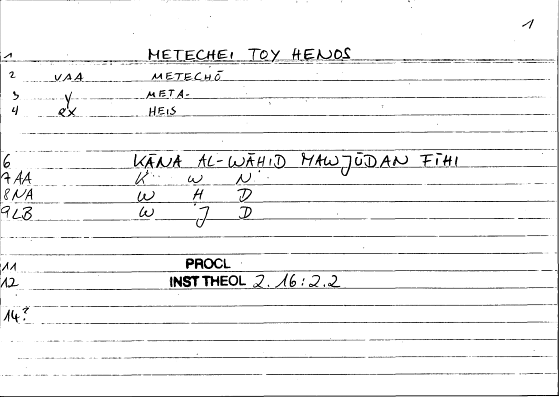 1
1 METECHEI TOY HENOS
2 VAA METECHŌ
3 y META-
4 ex HEIS
6 KĀNA AL-WĀHID MAWJŪDAN FĪHI
7 AA K W N
8 NA W H D
9 LB W J D
11 PROCL
12 INST THEOL 2.16:2.2
14?